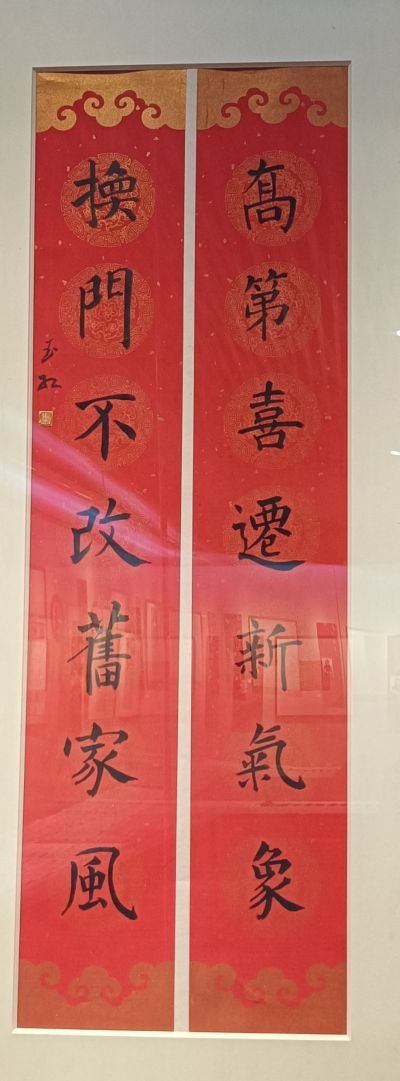 髙第喜遷新氣象
換門不改舊家風
玉紅